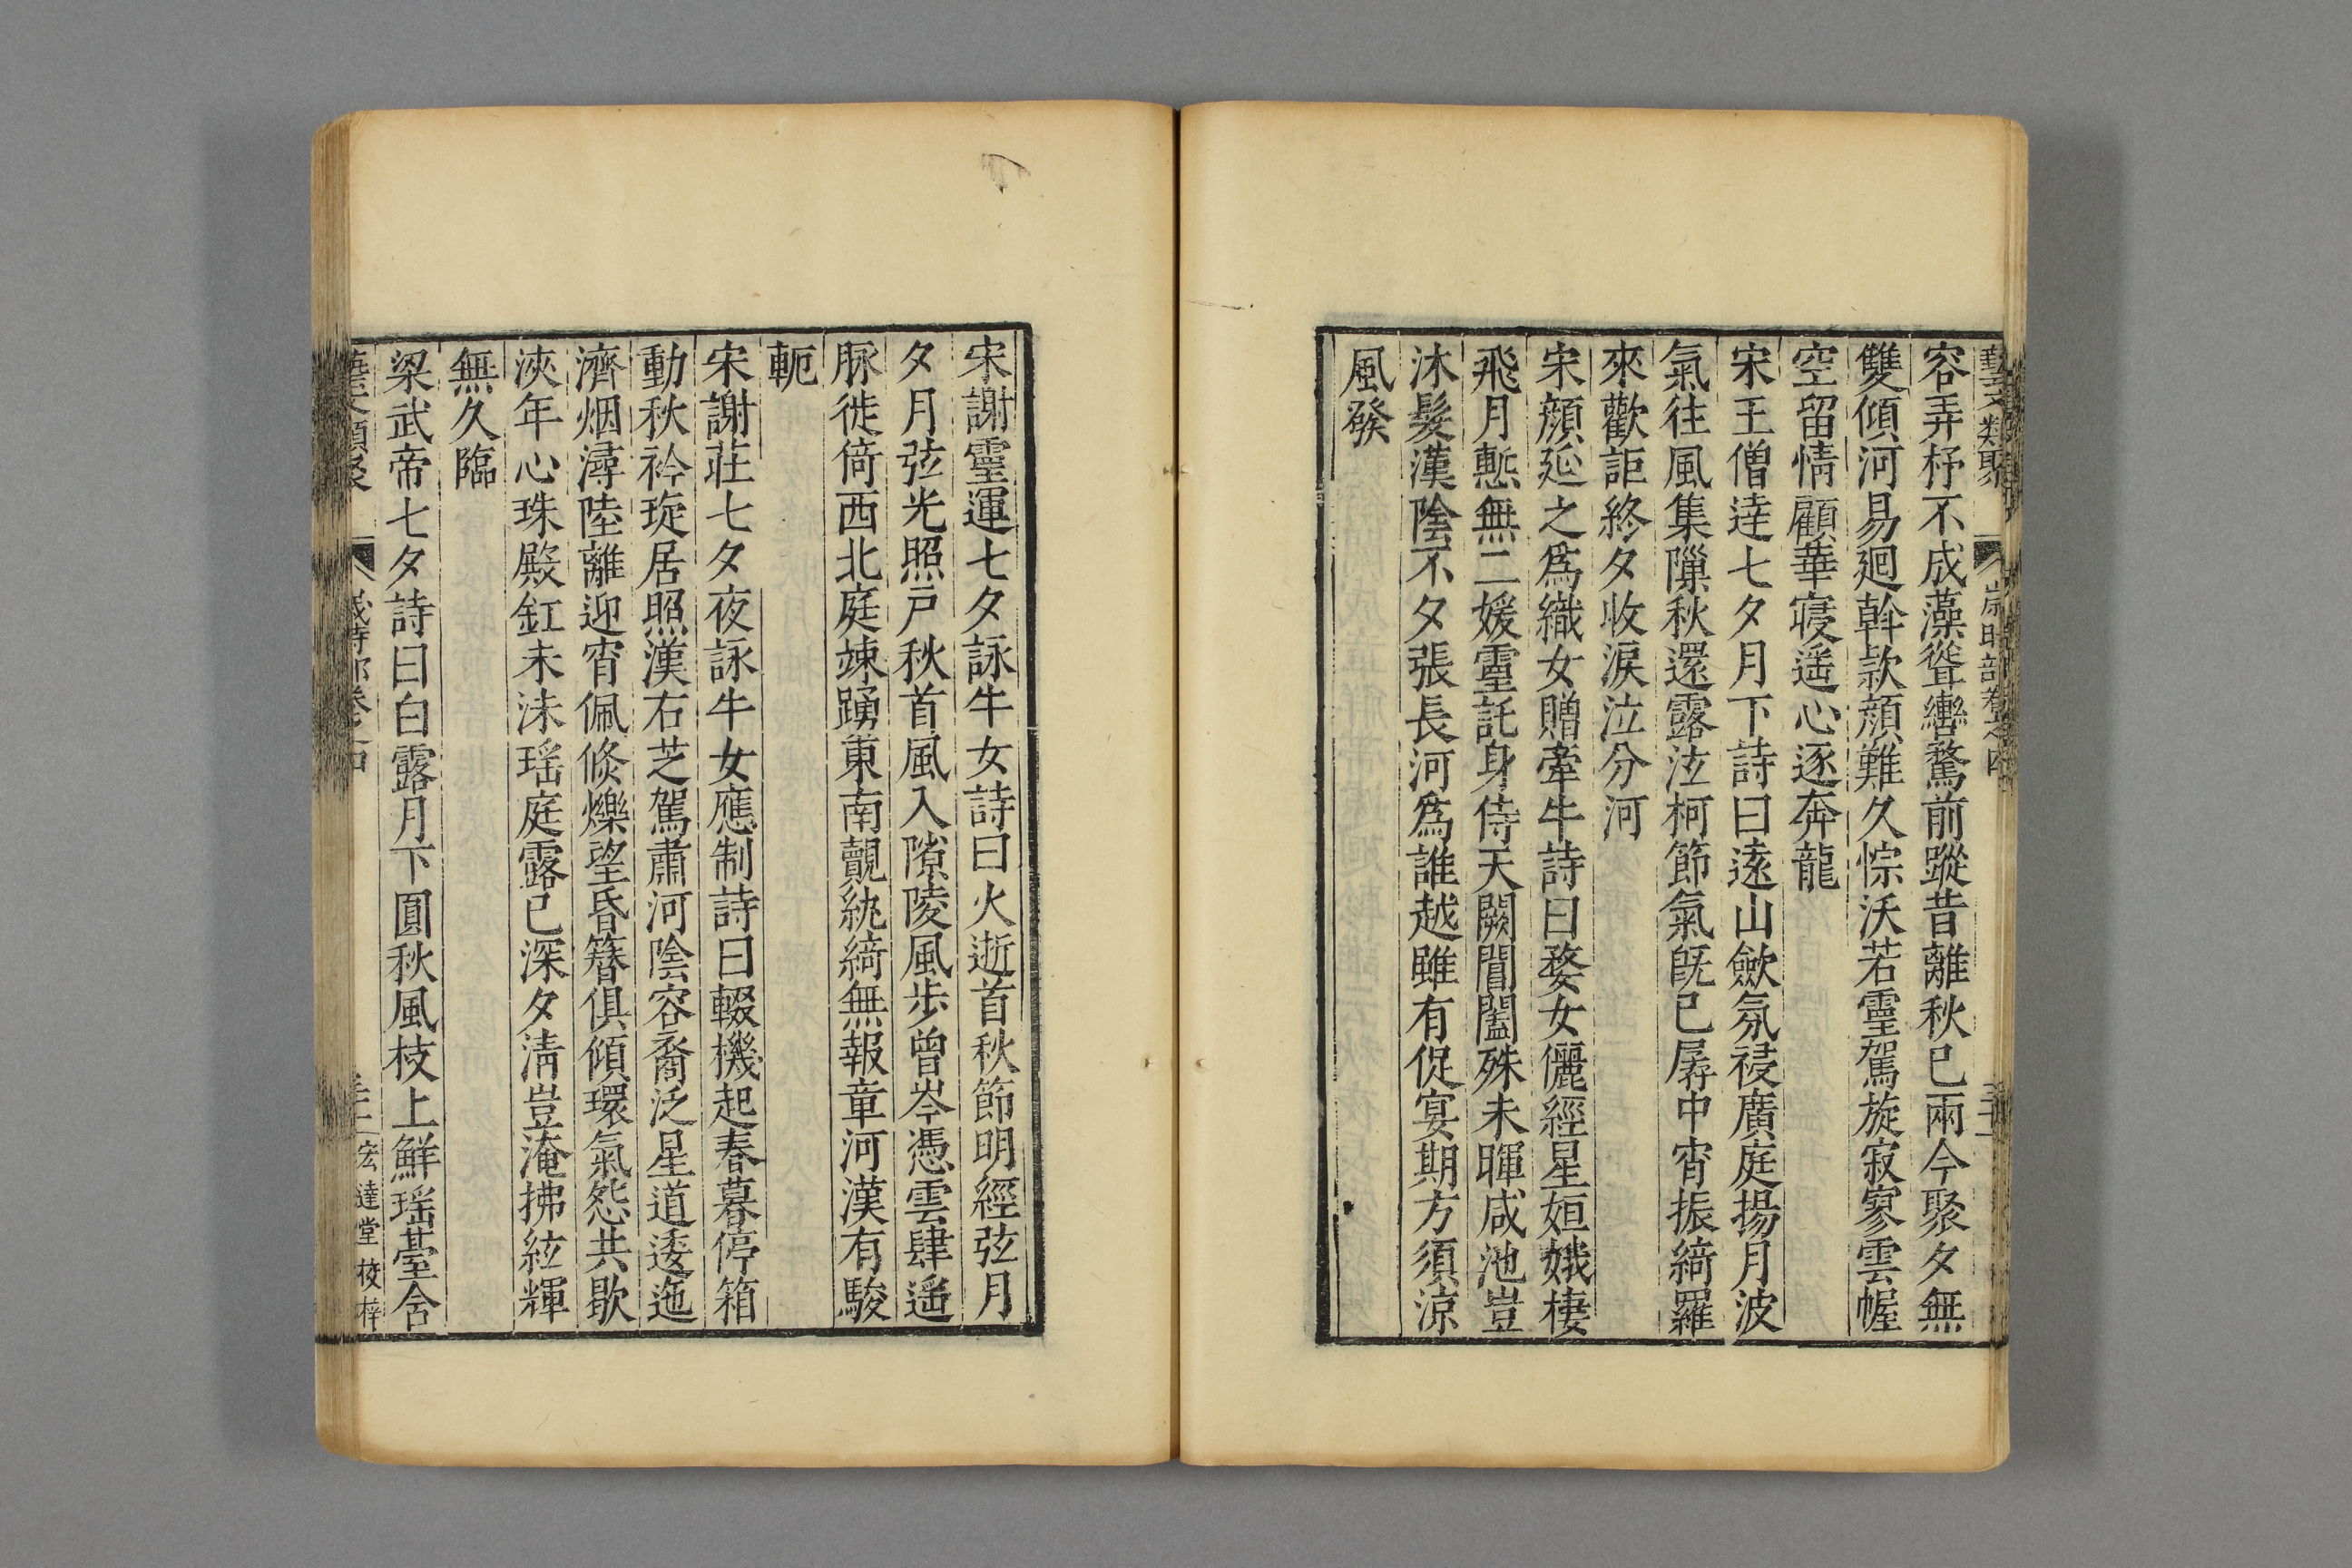 藝文類聚 歲時部卷之四 三十一
容弄杼不成藻聳轡騖前蹤昔離秋已兩今聚夕無
雙傾河易迴斡款顏難久悰沃若靈駕旋寂寥雲幄
空留情顧華寑遥心逐奔龍
宋王僧達七夕月下詩曰遠山歛氛祲廣庭揚月波
氣往風集隟秋還露泫柯節氣旣已孱中宵振綺羅
來歡詎終夕收淚泣分河
宋顏延之爲織女贈牽牛詩曰婺女儷經星姮娥棲
飛月慙無二媛靈託身侍天闕閶闔殊未暉咸池豈
沐髮漢陰不夕張長河爲誰越雖有促宴期方須涼
風發
宋謝靈運七夕詠牛女詩曰火逝首秋節明經弦月
夕月弦光照戸秋首風入隙陵風步曾岑憑雲肆遥
脉徙倚西北庭竦踴東南覿紈綺無報章河漢有駿
軛
宋謝莊七夕夜詠牛女應制詩曰輟機起春暮停箱
動秋衿琁居照漢右芝駕肅河陰容裔泛星道逶迤
濟烟潯陸離迎宵佩倐爍望昏簪俱傾環氣怨共歇
浹年心珠殿釭未沬瑶庭露已深夕清豈淹拂絃輝
無久臨
梁武帝七夕詩曰白露月下圓秋風枝上鮮瑶臺含
藝文類聚 歲時部卷之四 三十二 宏達堂校梓